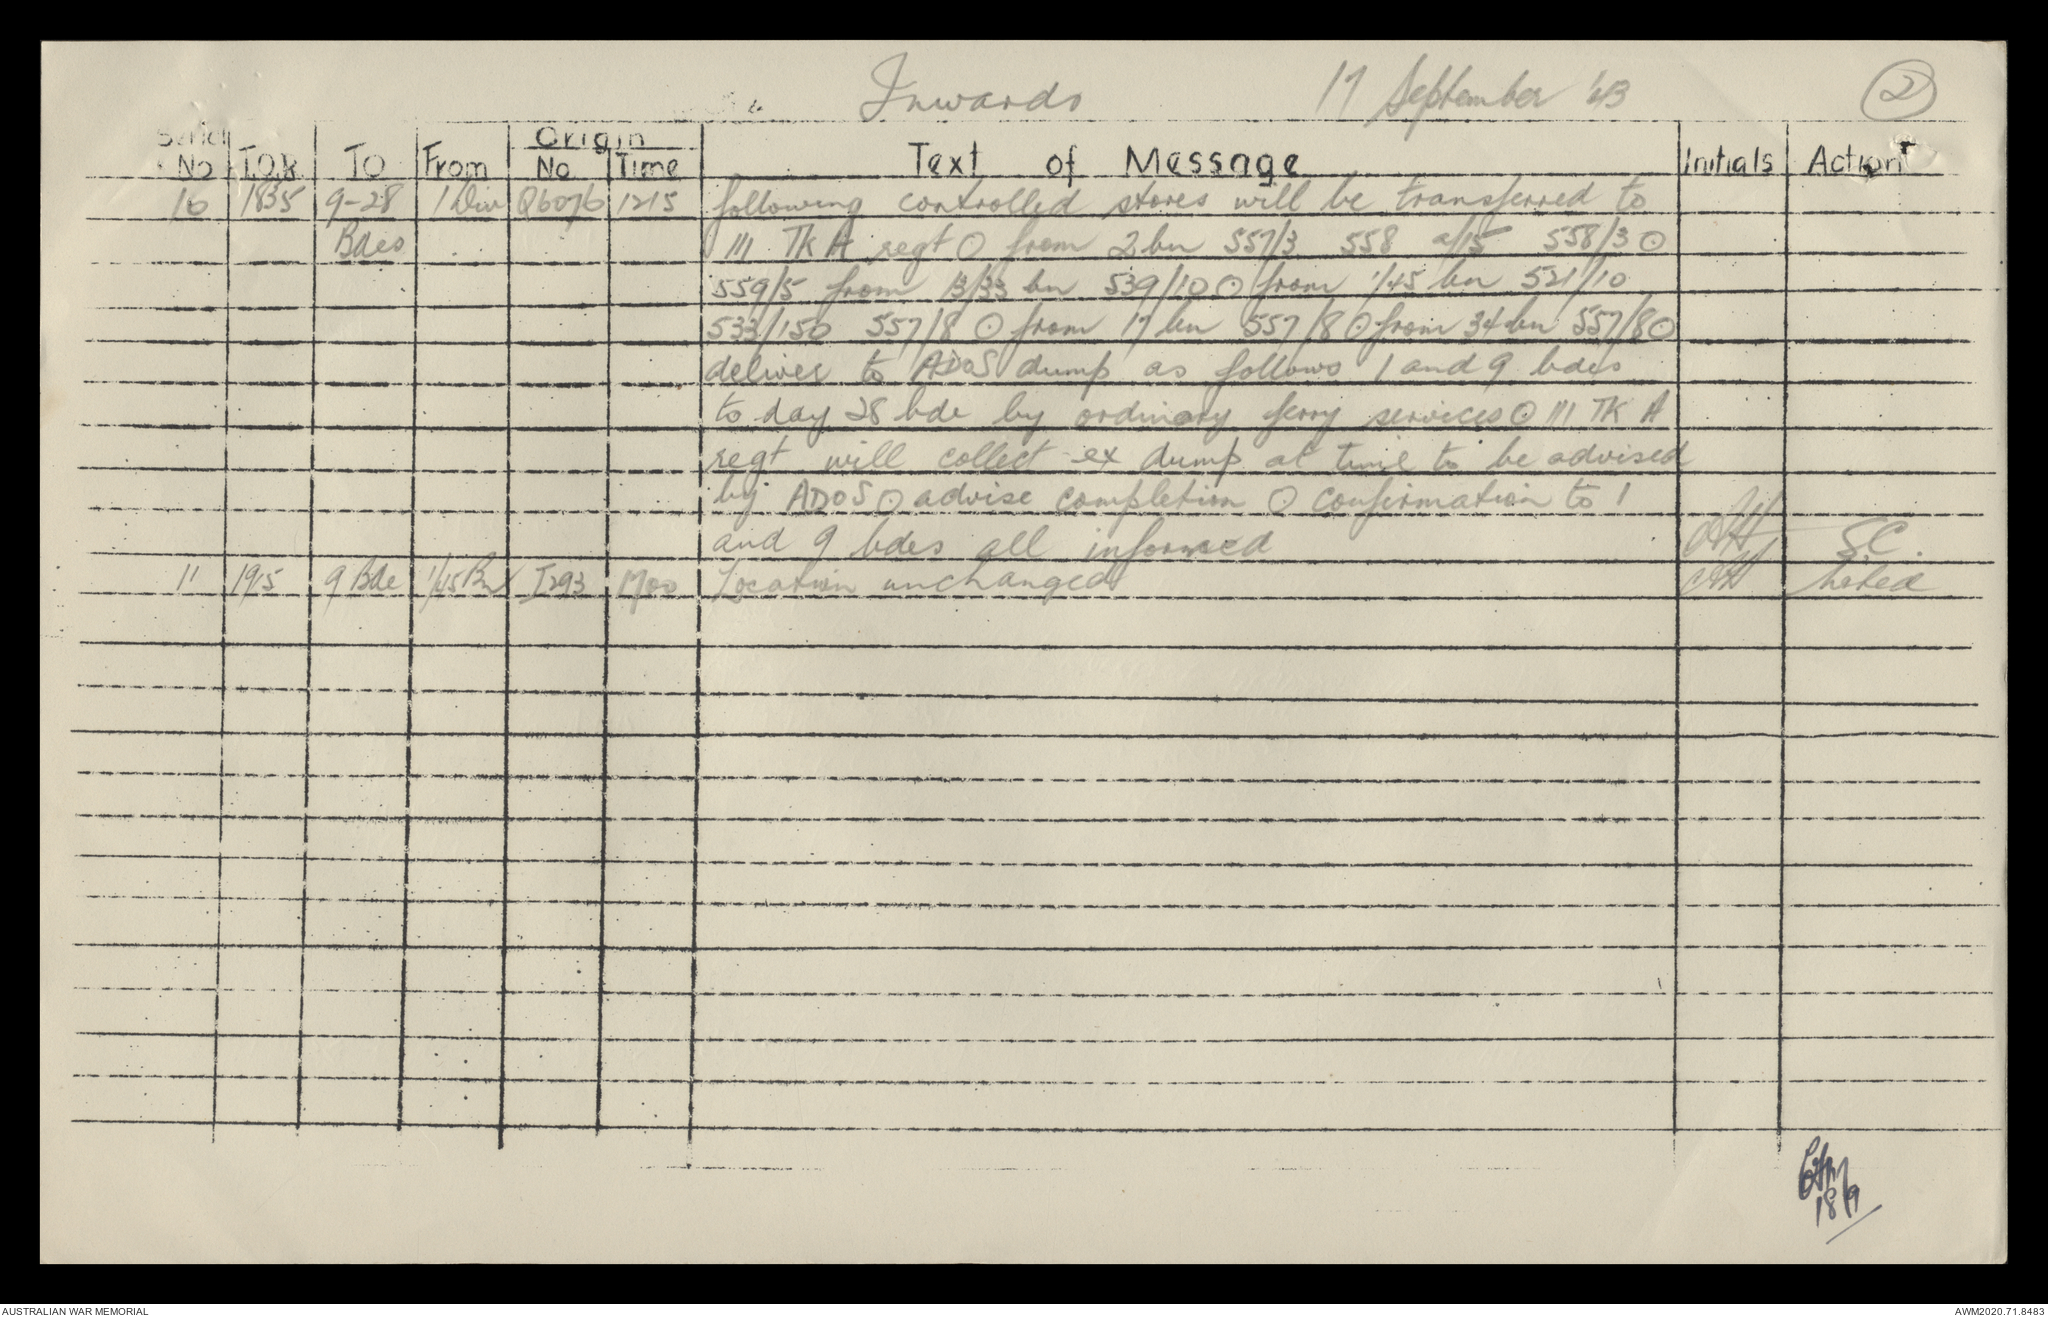 Inwards 17 September '43 2
Serial Origin
No T.O.R TO From No Time Text of Message Initials Action
10 1835 9-28 1 Div Q6076 1215 following controlled stores will be transferred to
Bdes 111 TK A regt ⊙ from 2 bn 557/3 558 a/15 558/3 ⊙
559/5 from 13/33 bn 539/10 ⊙ from 1/45 bn 521/10
533/150 557/8 ⊙ from 17 bn 557/8 ⊙ from 34 bn 557/8 ⊙
deliver to ADOS dump as follows 1 and 9 bdes
to day 28 bde by ordinary ferry services ⊙ 111 TK A
regt will collect ex dump at time to be advised
by ADOS ⊙ advise completion ⊙ confirmation to 1
and 9 bdes all informed S.C.
11 1915 9 Bde 1/45 Bn I293 1700 Location unchanged Noted
18/9
AUSTRALIAN WAR MEMORIAL AWM2020.71.8483